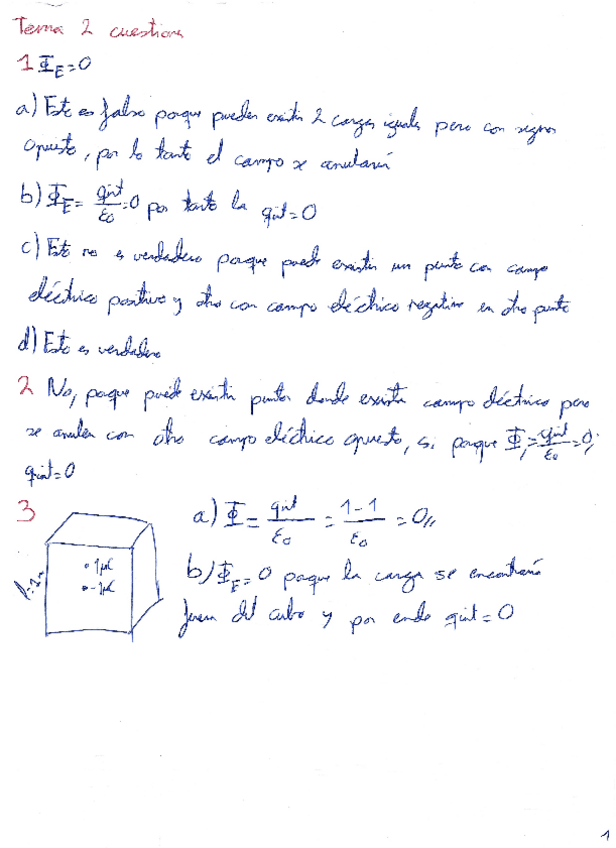 Tema 2 cuestiones
1 Φ_E=0
a) Esto es falso porque pueden existir 2 cargas iguales pero con signos
opuesto, por lo tanto el campo se anularía
b) Φ_E = qint/ε0 = 0 por tanto la qint=0
c) Esto no es verdadero porque puede existir un punto con campo
eléctrico positivo y otro con campo eléctrico negativo en otro punto
d) Esto es verdadero
2 No, porque puede existir puntos donde exista campo eléctrico pero
se anulen con otro campo eléctrico opuesto, si porque Φ = qint/ε0 = 0;
qint=0
3
a) Φ = qint/ε0 = 1-1/ε0 = 0//
l=1m
• 1μC
• -1μC
b) Φ_E=0 porque la carga se encontraría
fuera del cubo y por ende qint=0
1